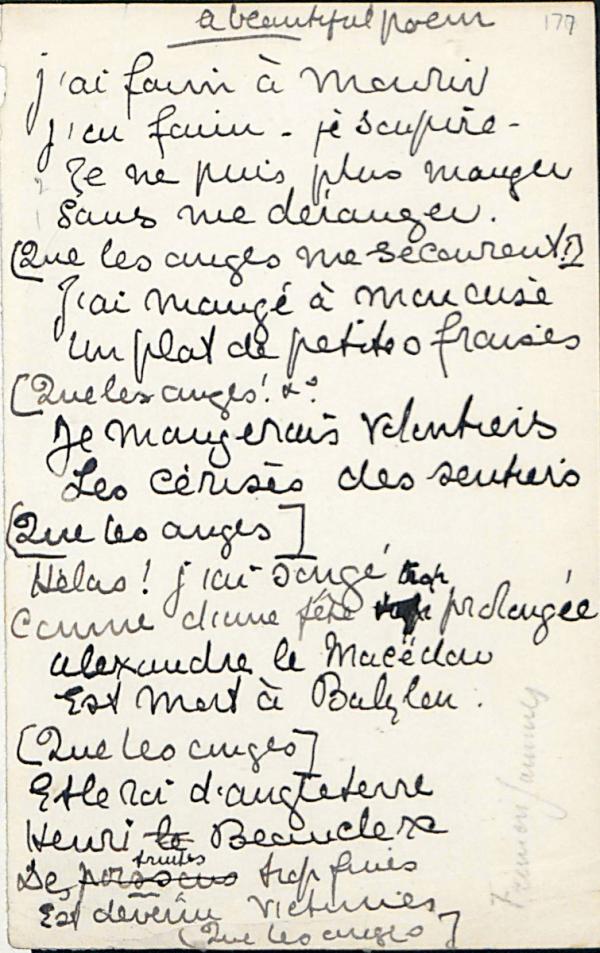 a beautiful poem 177
j'ai faim à mourir
j'en faim - je soupire -
Je ne puis plus manger
Sans me déranger.
[Que les anges me sécourent!]
J'ai mangé à mon aise
Un plat de petites fraises
[Que les anges! &c
Je mangerais volontiers
Les cérises des sentiers
[Que les anges]
Hélas! j'ai songé
Comme d'une fête trop prolongée
Alexandre le Macédon
Est mort à Babylon.
[Que les anges]
Et le roi d'angleterre
Henri le Beauclerc
De truites trop fines
Est devenu victimes
(Que les anges]